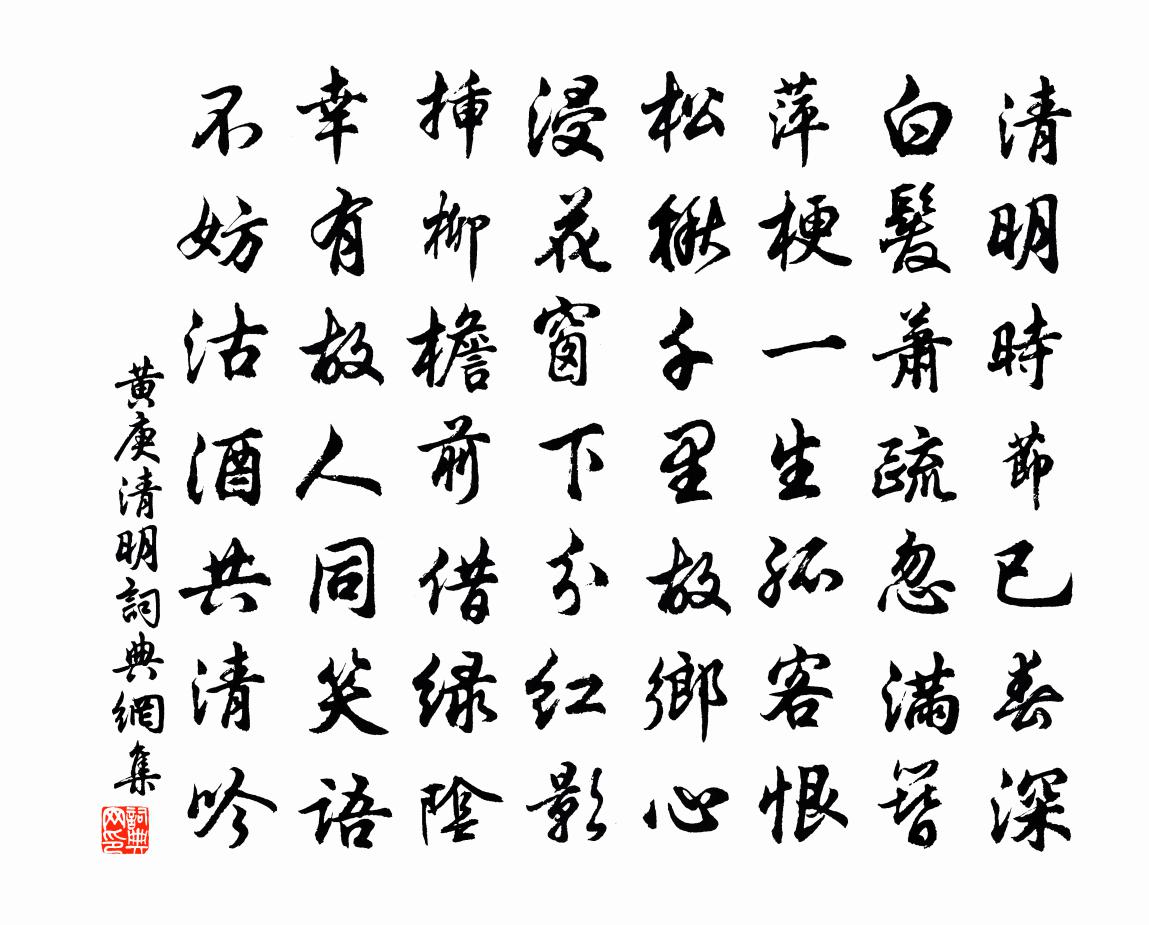 清明時節已春深
白髮蕭疏忽滿簪
萍梗一生孤客恨
松楸千里故鄉心
浸花窗下分紅影
插柳檐前借綠陰
幸有故人同笑語
不妨沽酒共清吟
黃庚清明詞典網集
詞典网印